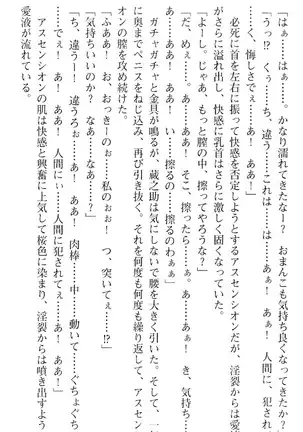 「はぁ……はぁ……。かなり濡れてきたなー？　おまんこも気持ち良くなってきたか？」
「うっ⁉　くぅ……ち、違う……これは……は……あぁ……あぁ！　人間に、犯され
て……く、悔しさでぇ……あぁぁ！」
　必死に首を左右に振って快感を否定しようとするアスセンシオンだが、淫裂からは愛
液がさらに溢れ出し、快感に乳首はさらに激しく固くなっていた。
「よーし。じゃあ、もっと膣の中、擦ってやろうな？」
「だ、めぇ……。あ！　あぁ！　そこ、擦ったら……あぁ！　あぁ！　き、気持ち……
い……あぁ！　あぁ！　……擦るの……擦るのわぁぁ」
　ガチャガチャと金具が鳴るが、蔵之助は気にしないで腰を大きく引いた。そして、一気
に奥までペニスをねじ込み、再び引き抜く。それを何度も何度も繰り返して、アスセンシ
オンの膣を攻め続けた。
「ふああ！　お、おっきーのぉ……私のぉぉ！　つ、突いてぇ……⁉」
「気持ちいいのか？　なぁ……なぁ……？」
「ち、違うー！　違うろぉ……あぁ！　あぁ！　肉棒……中……動いて……ぐちょぐち
ょ……でぇ！　あ！　あぁ！　人間にぃ……人間に犯されてぇ……あ！　あぁ！」
　アスセンシオンの肌は快感と興奮に上気して桜色に染まり、淫裂からは噴き出すように
愛液が流れていた。